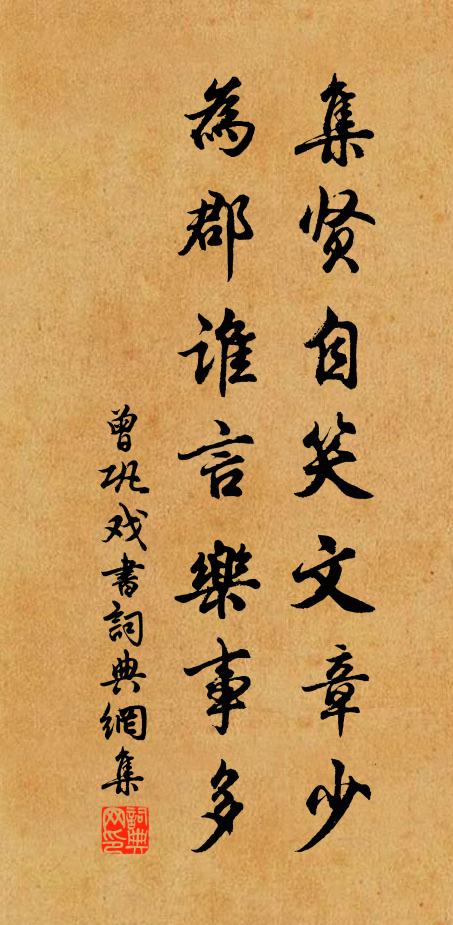 集贤自笑文章少
為郡誰言樂事多
曾巩戏書詞典網集
詞典网印